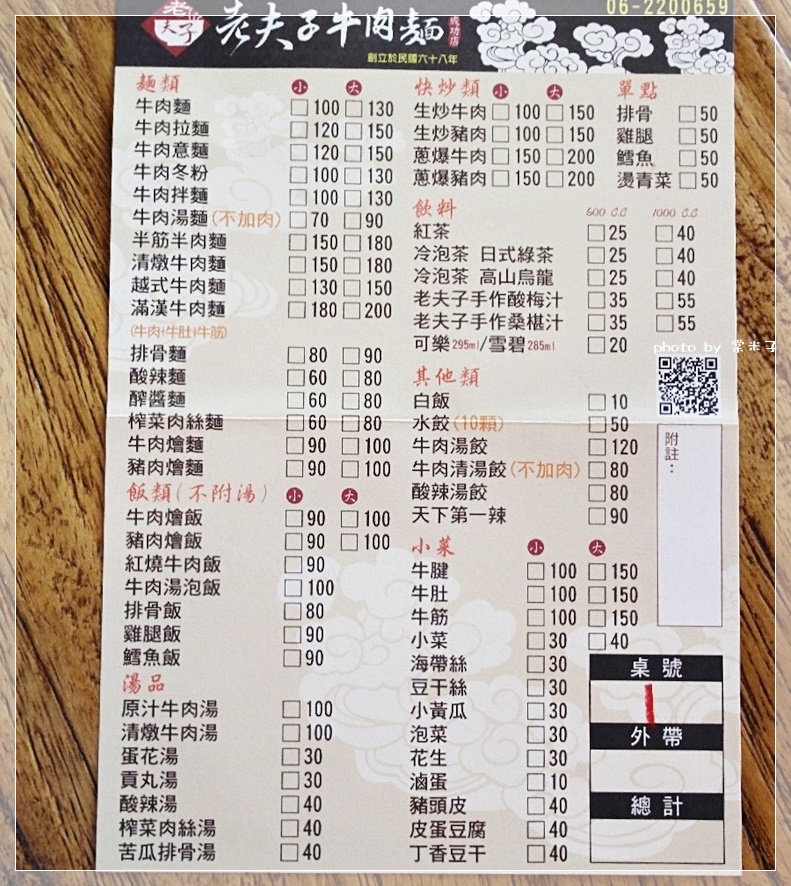 06-2200659
老夫子
老夫子牛肉麵 成功店
創立於民國六十八年
麵類 小 大
牛肉麵 100 130
牛肉拉麵 120 150
牛肉意麵 120 150
牛肉冬粉 100 130
牛肉拌麵 100 130
牛肉湯麵(不加肉) 70 90
半筋半肉麵 150 180
清燉牛肉麵 150 180
越式牛肉麵 130 150
滿漢牛肉麵 180 200
(牛肉+牛肚+牛筋)
排骨麵 80 90
酸辣麵 60 80
醡醬麵 60 80
榨菜肉絲麵 60 80
牛肉燴麵 90 100
豬肉燴麵 90 100
飯類(不附湯) 小 大
牛肉燴飯 90 100
豬肉燴飯 90 100
紅燒牛肉飯 90
牛肉湯泡飯 100
排骨飯 80
雞腿飯 90
鱈魚飯 90
湯品
原汁牛肉湯 100
清燉牛肉湯 100
蛋花湯 30
貢丸湯 30
酸辣湯 40
榨菜肉絲湯 40
苦瓜排骨湯 40
快炒類 小 大
生炒牛肉 100 150
生炒豬肉 100 150
蔥爆牛肉 150 200
蔥爆豬肉 150 200
單點
排骨 50
雞腿 50
鱈魚 50
燙青菜 50
飲料 600 c.c 1000 c.c
紅茶 25 40
冷泡茶 日式綠茶 25 40
冷泡茶 高山烏龍 25 40
老夫子手作酸梅汁 35 55
老夫子手作桑椹汁 35 55
可樂295ml/雪碧285ml 20
其他類
白飯 10
水餃(10顆) 50
牛肉湯餃 120
牛肉清湯餃(不加肉) 80
酸辣湯餃 80
天下第一辣 90
小菜 小 大
牛腱 100 150
牛肚 100 150
牛筋 100 150
小菜 30 40
海帶絲 30
豆干絲 30
小黃瓜 30
泡菜 30
花生 30
滷蛋 10
豬頭皮 40
皮蛋豆腐 40
丁香豆干 40
photo by 棠米子
附註：
桌號
1
外帶
總計